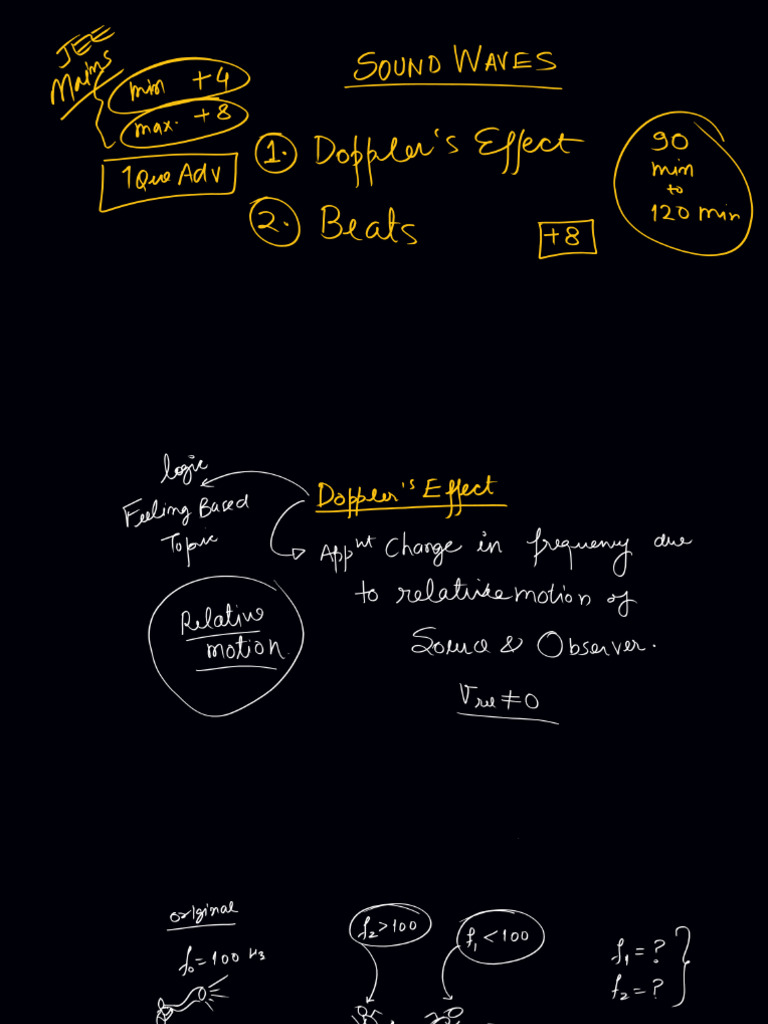 JEE
Mains
min +4
max. +8
1 Que Adv
SOUND WAVES
1. Doppler's Effect
2. Beats
+8
90
min
to
120 min
logic
Feeling Based
Topic
Relative
motion
Doppler's Effect
Appnt Change in frequency due
to relative motion of
Source & Observer.
Vrel ≠ 0
original
f₀ = 100 Hz
f₂ > 100
f₁ < 100
f₁ = ?
f₂ = ?